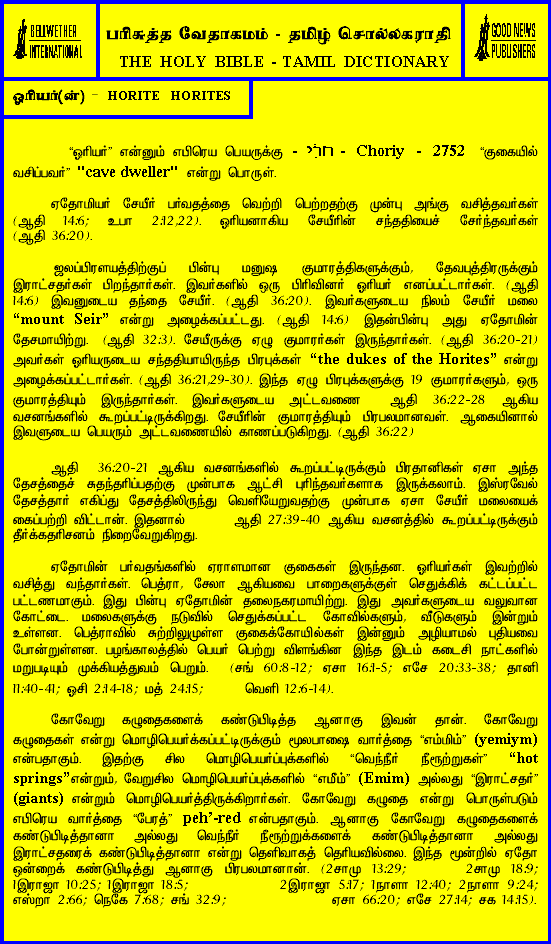 BELLWETHER
INTERNATIONAL
பரிசுத்த வேதாகமம் - தமிழ் சொல்லகராதி
THE HOLY BIBLE - TAMIL DICTIONARY
GOOD NEWS
PUBLISHERS
ஓரியர்(ன்) - HORITE HORITES
"ஓரியர்" என்னும் எபிரெய பெயருக்கு - חֹרִי - Choriy - 2752 "குகையில்
வசிப்பவர்" "cave dweller" என்று பொருள்.
ஏதோமியர் சேயீர் பர்வதத்தை வெற்றி பெற்றதற்கு முன்பு அங்கு வசித்தவர்கள்
(ஆதி 14:6; உபா 2:12,22). ஓரியனாகிய சேயீரின் சந்ததியைச் சேர்ந்தவர்கள்
(ஆதி 36:20).
ஜலப்பிரளயத்திற்குப் பின்பு மனுஷ குமாரத்திகளுக்கும், தேவபுத்திரருக்கும்
இராட்சதர்கள் பிறந்தார்கள். இவர்களில் ஒரு பிரிவினர் ஓரியர் எனப்பட்டார்கள். (ஆதி
14:6) இவனுடைய தந்தை சேயீர். (ஆதி 36:20). இவர்களுடைய நிலம் சேயீர் மலை
"mount Seir" என்று அழைக்கப்பட்டது. (ஆதி 14:6) இதன்பின்பு அது ஏதோமின்
தேசமாயிற்று. (ஆதி 32:3). சேயீருக்கு ஏழு குமாரர்கள் இருந்தார்கள். (ஆதி 36:20-21)
அவர்கள் ஓரியருடைய சந்ததியாயிருந்த பிரபுக்கள் "the dukes of the Horites" என்று
அழைக்கப்பட்டார்கள். (ஆதி 36:21,29-30). இந்த ஏழு பிரபுக்களுக்கு 19 குமாரர்களும், ஒரு
குமாரத்தியும் இருந்தார்கள். இவர்களுடைய அட்டவணை ஆதி 36:22-28 ஆகிய
வசனங்களில் கூறப்பட்டிருக்கிறது. சேயீரின் குமாரத்தியும் பிரபலமானவள். ஆகையினால்
இவளுடைய பெயரும் அட்டவணையில் காணப்படுகிறது. (ஆதி 36:22)
ஆதி 36:20-21 ஆகிய வசனங்களில் கூறப்பட்டிருக்கும் பிரதானிகள் ஏசா அந்த
தேசத்தைச் சுதந்தரிப்பதற்கு முன்பாக ஆட்சி புரிந்தவர்களாக இருக்கலாம். இஸ்ரவேல்
தேசத்தார் எகிப்து தேசத்திலிருந்து வெளியேறுவதற்கு முன்பாக ஏசா சேயீர் மலையைக்
கைப்பற்றி விட்டான். இதனால் ஆதி 27:39-40 ஆகிய வசனத்தில் கூறப்பட்டிருக்கும்
தீர்க்கதரிசனம் நிறைவேறுகிறது.
ஏதோமின் பர்வதங்களில் ஏராளமான குகைகள் இருந்தன. ஓரியர்கள் இவற்றில்
வசித்து வந்தார்கள். பெத்ரா, சேலா ஆகியவை பாறைகளுக்குள் செதுக்கிக் கட்டப்பட்ட
பட்டணமாகும். இது பின்பு ஏதோமின் தலைநகரமாயிற்று. இது அவர்களுடைய வலுவான
கோட்டை. மலைகளுக்கு நடுவில் செதுக்கப்பட்ட கோவில்களும், வீடுகளும் இன்றும்
உள்ளன. பெத்ராவில் சுற்றிலுமுள்ள குகைக்கோயில்கள் இன்னும் அழியாமல் புதியவை
போன்றுள்ளன. பழங்காலத்தில் பெயர் பெற்று விளங்கின இந்த இடம் கடைசி நாட்களில்
மறுபடியும் முக்கியத்துவம் பெறும். (சங் 60:8-12; ஏசா 16:1-5; எசே 20:33-38; தானி
11:40-41; ஓசி 2:14-18; மத் 24:15; வெளி 12:6-14).
கோவேறு கழுதைகளைக் கண்டுபிடித்த ஆனாகு இவன் தான். கோவேறு
கழுதைகள் என்று மொழிபெயர்க்கப்பட்டிருக்கும் மூலபாஷை வார்த்தை "எம்மிம்" (yemiym)
என்பதாகும். இதற்கு சில மொழிபெயர்ப்புக்களில் "வெந்நீர் நீரூற்றுகள்" "hot
springs"என்றும், வேறுசில மொழிபெயர்ப்புக்களில் "எமீம்" (Emim) அல்லது "இராட்சதர்"
(giants) என்றும் மொழிபெயர்த்திருக்கிறார்கள். கோவேறு கழுதை என்று பொருள்படும்
எபிரெய வார்த்தை "பேரத்" peh'-red என்பதாகும். ஆனாகு கோவேறு கழுதைகளைக்
கண்டுபிடித்தானா அல்லது வெந்நீர் நீரூற்றுக்களைக் கண்டுபிடித்தானா அல்லது
இராட்சதரைக் கண்டுபிடித்தானா என்று தெளிவாகத் தெரியவில்லை. இந்த மூன்றில் ஏதோ
ஒன்றைக் கண்டுபிடித்து ஆனாகு பிரபலமானான். (2சாமு 13:29; 2சாமு 18:9;
1இராஜா 10:25; 1இராஜா 18:5; 2இராஜா 5:17; 1நாளா 12:40; 2நாளா 9:24;
எஸ்றா 2:66; நெகே 7:68; சங் 32:9; ஏசா 66:20; எசே 27:14; சக 14:15).